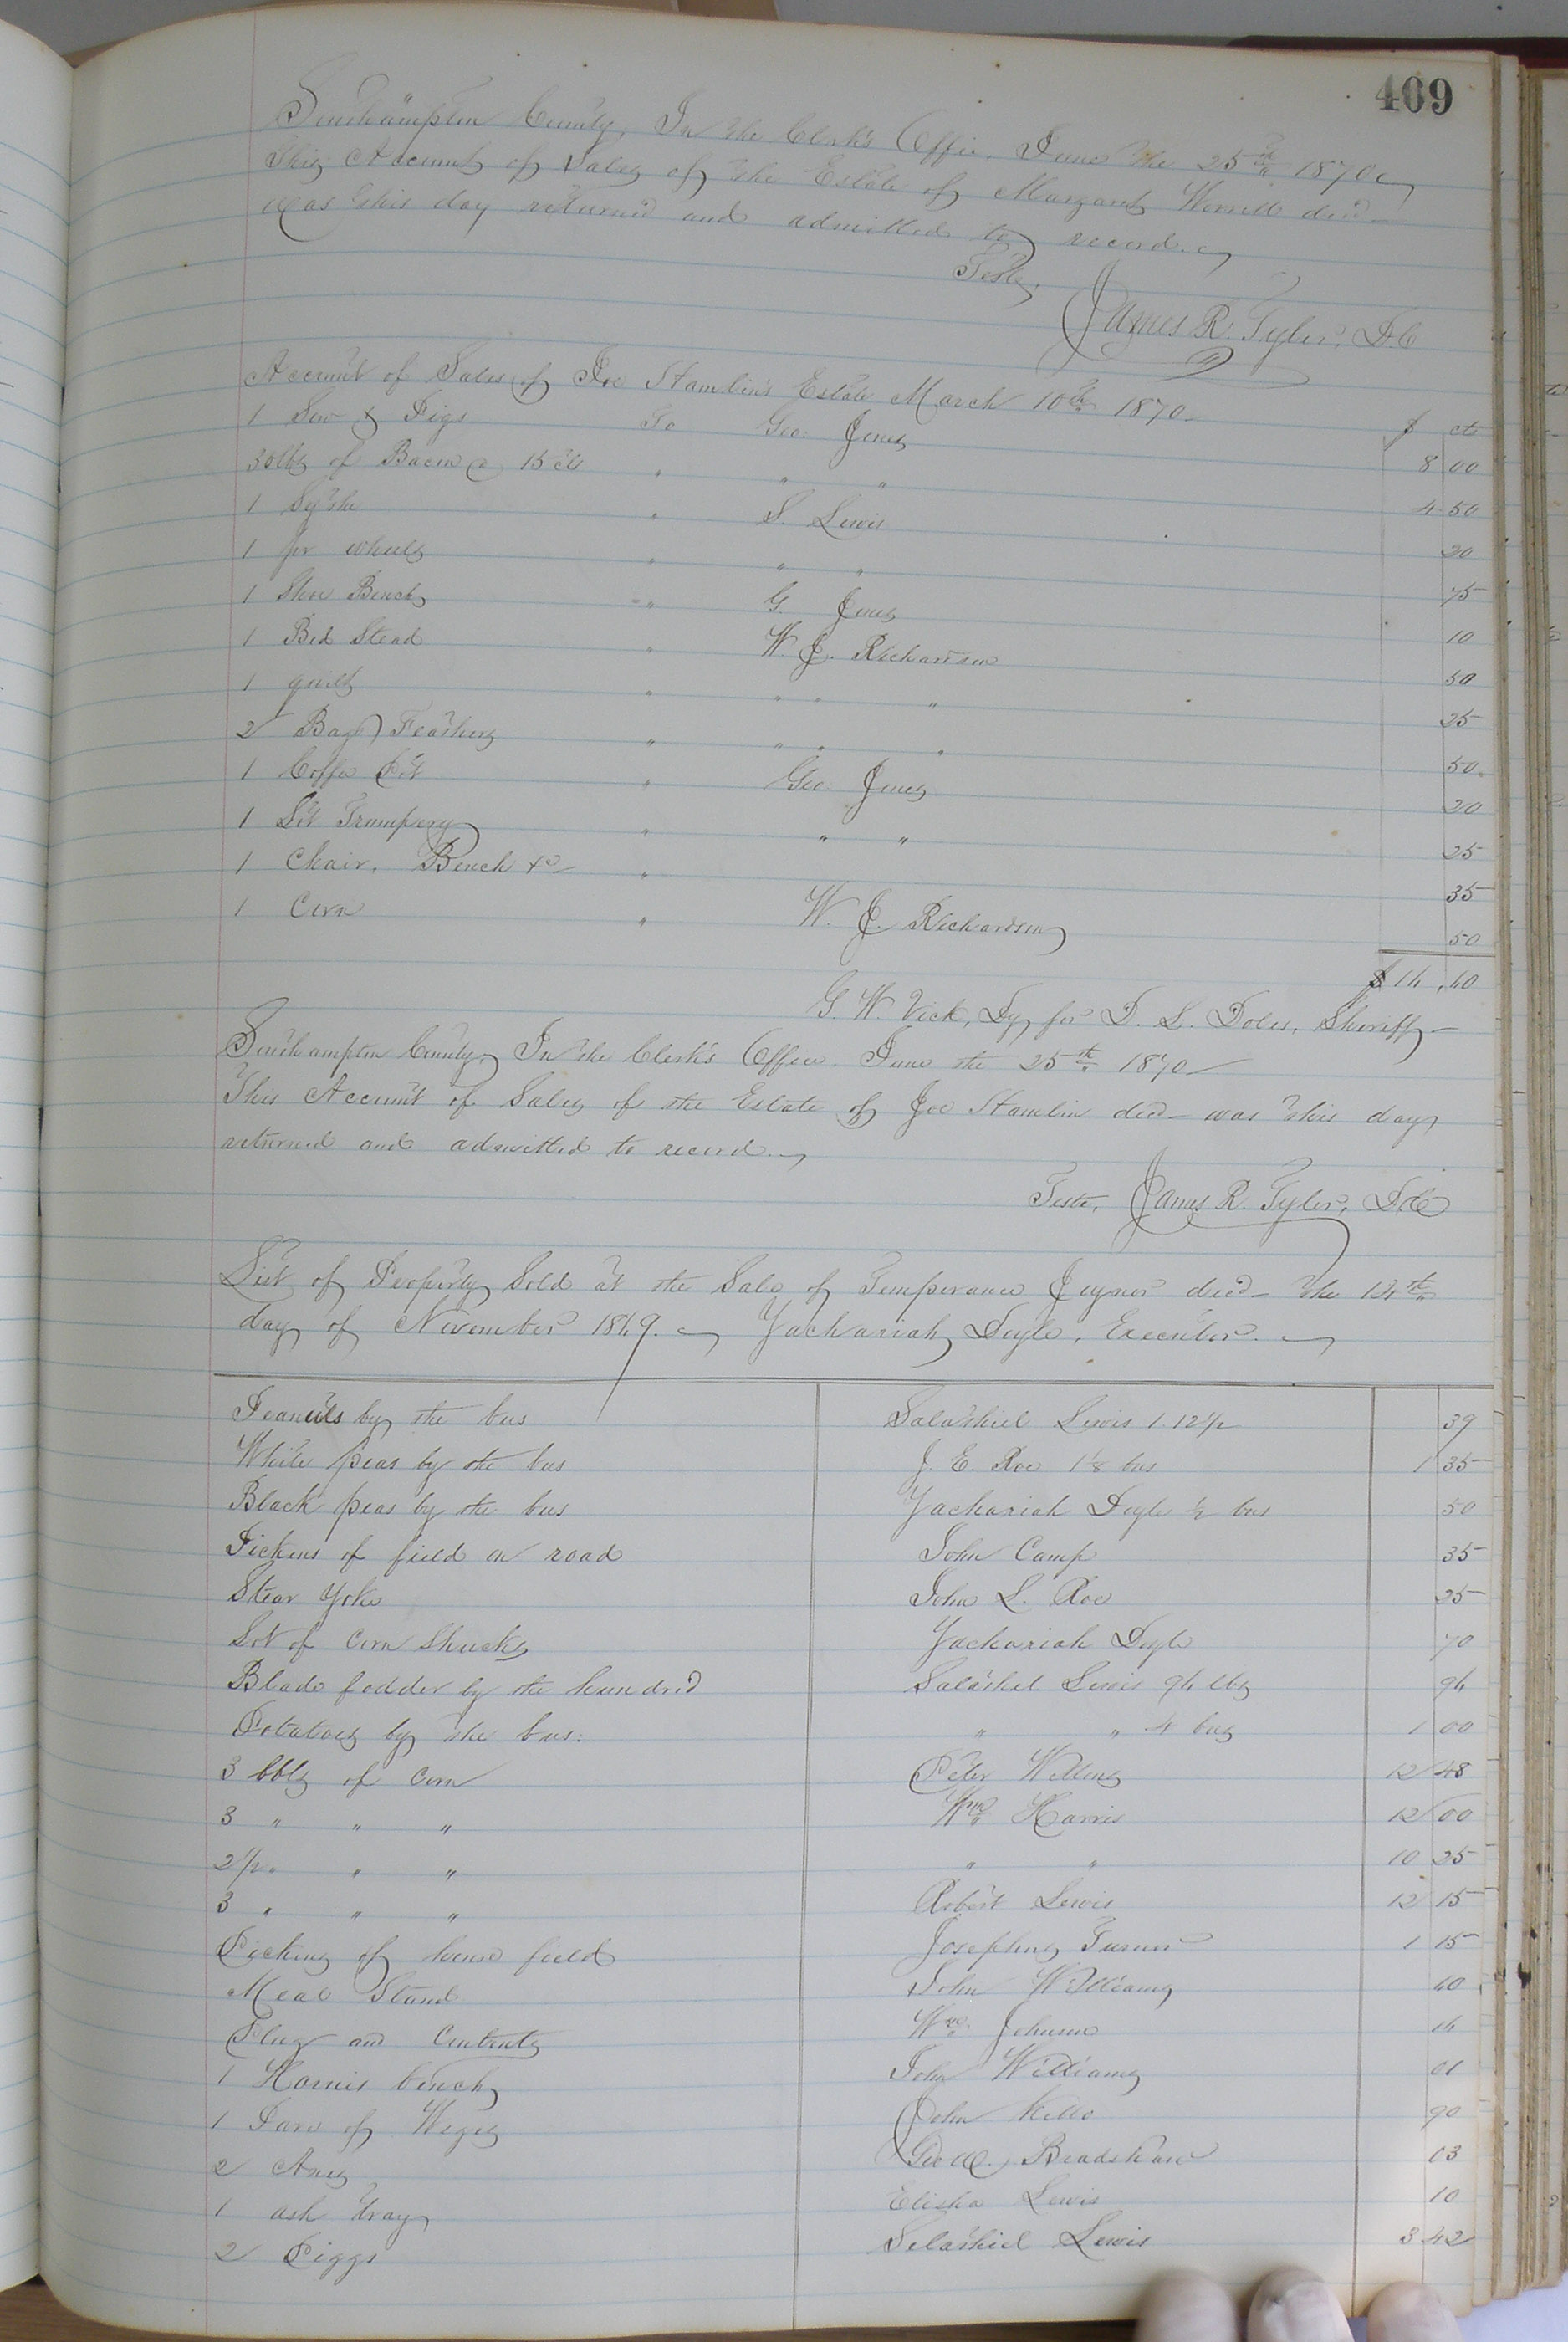 469
Southampton County, In the Clerk's Office, June the 25th 1870
This Account of Sales of the Estate of Margaret Worrell decd
was this day returned and admitted to record.
Teste,
James R. Tyler, D.C
Account of Sales of Joe Hamlin's Estate March 10th 1870
$ cts
1 Sow & Pigs To Geo. Jones 8 00
30 lbs of Bacon @ 15 cts " " " 4 50
1 Sythe " S. Lewis 20
1 pr wheels " " " 75
1 Shoe Bench " G. Jones 10
1 Bed Stead " W. J. Richardson 50
1 quilt " " " " 25
2 Bags Feathers " " " " 50
1 Coffee Pot " Geo Jones 20
1 Lot Trumpery " " " 25
1 Chair, Bench &c " 35
1 Corn " W. J. Richardson 50
$16.10
G. W. Vick, Dy for D. L. Doles, Sheriff
Southampton County, In the Clerk's Office June the 25th 1870
This Account of Sales of the Estate of Joe Hamlin decd was this day
returned and admitted to record.
Teste, James R. Tyler, D.C
List of Property Sold at the Sale of Temperance Joyner decd the 12th
day of November 1869. Zachariah Doyle, Executor.
Peanuts by the bus Salathiel Lewis 1.12 1/2 39
White peas by the bus J. E. Roe 1 1/8 bus 1 35
Black peas by the bus Zachariah Doyle 1/2 bus 50
Pickens of field on road John Camp 35
Stear Yoke John L. Roe 25
Lot of Corn Shucks Zachariah Doyle 70
Blade fodder by the hundred Salathel Lewis 94 lbs 94
Potatoes by the bus: " " 4 bus 1 00
3 bbls of Corn Peter Willens 12 48
3 " " " Wm Harris 12 00
2 1/2 " " " " " 10 25
3 " " " Robert Lewis 12 15
Picking of house field Josephus Turner 1 15
Meal Stand John Williams 40
and Contents Wm Johnson 16
1 Harris bench John Williams 01
1 Pare of Weges John Kello 90
2 Axes Geo W. Bradshaw 13
1 ash tray Elisha Lewis 10
2 Piggs Selathiel Lewis 3 42